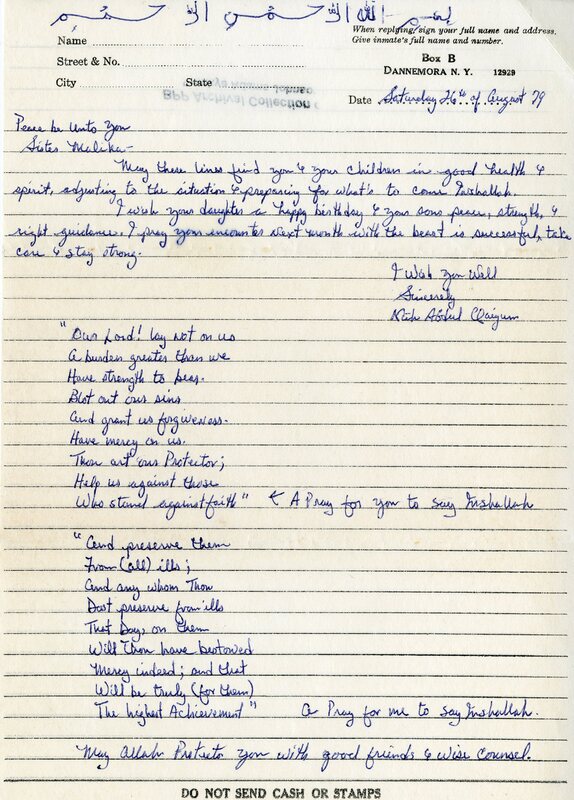 بسم الله الرحمن الرحيم
When replying, sign your full name and address.
Give inmate's full name and number.
Name
Street & No.
City State
Box B
DANNEMORA N. Y. 12929
BPP Archival Collection
Date Saturday 26th of August 79
Peace be Unto You
Sister Malika-
May these lines find you & your children in good health &
spirit, adjusting to the situation & preparing for what's to come Inshallah.
I wish your daughter a happy birthday & your sons peace, strength, &
right guidance. I pray your encounter next month with the beast is successful, take
care & stay strong.
I Wish You Well
Sincerely
Abdul Qaiyum
"Our Lord! lay not on us
A burden greater than we
Have strength to bear.
Blot out our sins
And grant us forgiveness.
Have mercy on us.
Thou art our Protector;
Help us against those
Who stand against faith" ← A Pray for you to say Inshallah
"And preserve them
From (all) ills;
And any whom Thou
Dost preserve from ills
That Day, on them
Will Thou have bestowed
Mercy indeed; and that
Will be truly (for them)
The highest Achievement" A Pray for me to say Inshallah.
May Allah Protector you with good friends & wise counsel.
DO NOT SEND CASH OR STAMPS